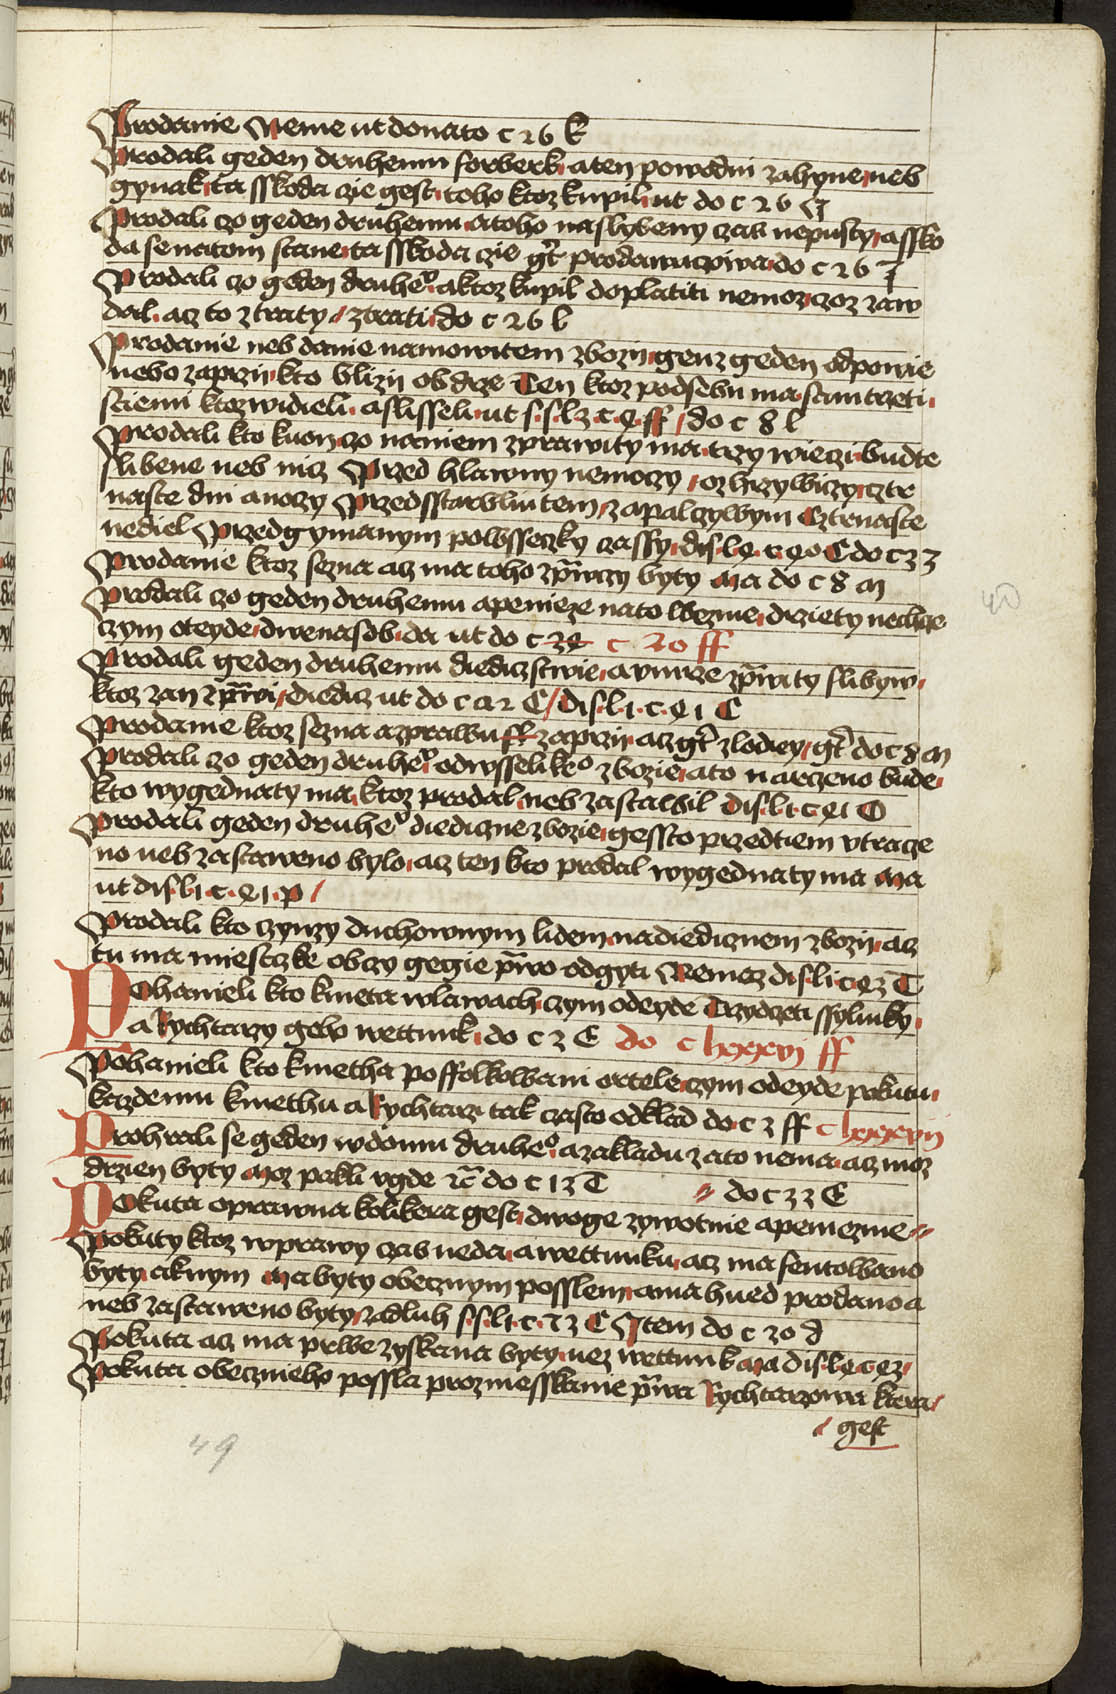 Prodanie Neme ut donato c 26 k
Prodali geden druhemu forberk a ten powodni zahyne neb
gynak ta sskoda zie gest toho ktoz kupil ut do c 26
Prodali czo geden druhemu a toho na slybeny czas nepusty a ssko
da se na tom stane ta sskoda czie gt prodawaczowa do c 26
Prodali czo geden druheo a ktoz kupil doplatiti nemoz czoz zaw
dal acz to ztraty ztrati do c 26 l
Prodanie neb danie namowitem zbozii genz geden odpowie
nebo zaprzii kto blizii obdrze Ten ktoz pod sebu ma s tim trzeti
sciemi ktoz widieli a slisseli ut s s l z c e ff do c 8 l
Prodali kto kuon czo na niem zprawity ma trzy wieczi budte
slibene neb nicz Przed hlawny nemoczy ozhrzywiczy cztr
naste dni a noczy Przed sstawliutem zapalczywym Cztrnaste
nediel Przed gymanym powsseczky czassy dis l e c eo C do c z3
Prodanie ktoz sezna acz ma toho zprawczy byty Ma do c 8 m
Prodali czo geden druhemu a penieze na to wezme drziety nechcze
czym oteyde dwenasob da ut do c c 20 ff
Prodali geden druhemu diediczstwie a vmrze zprawity slibyw
ktoz zan zprawi diedicz ut do c 12 C dis l i c e1 C
Prodanie ktoz sezna a zprawu zaprzii acz gt zlodiey gt do c 8 m
Prodali czo geden druheo odwsselikeo zbozie a to narczeno bude
kto wygednaty ma ktoz prodal neb zastawil dis l i c e1 O
Prodali geden druheo diediczne zbozie gessto przedtiem vtracze
no neb zastaweno bylo acz ten kto prodal wygednaty ma Ma
ut dis l i c e1 p
Prodali kto czynzy duchownym lidem na diedicznem zbozii acz
tu ma miestczke obczy gegie prawo odgyti Nemcz dis l i c e2 T
Pohanieli kto kmeta w lawach czym odeyde Trzydczeti ssylinky
a Rychtarzy geho wettunk do c z E do c lxxxvi ff
Pohanieli kto kmetha po ffolkowani ortele czym odeyde pokutu
kazdemu kmethu a Rychtarzi tak czasto odklad do c z ff c lxxxvii
Prohrali se geden w domu druheo a zakladu za to nema acz moz
drzien byty Moz pakli vgde do c 12 T do c zz E
Pokuta oprawna kolikera gest dwoge zywotnie a peniezne
Pokuty ktoz w prawy czas neda a wettunku acz ma fentowano
byty a kmym Ma byty obecznym posslem a ma hued prodano a
neb zastaweno byty za dluh s s l i c 7z C Item do c zo d
Pokuta acz ma prwe zyskana byty nez wettunk Ma dis l e c ez
Pokuta obecznieho possla pro zmesskanie prawa Rychtarzowa ktera
gest
40
49